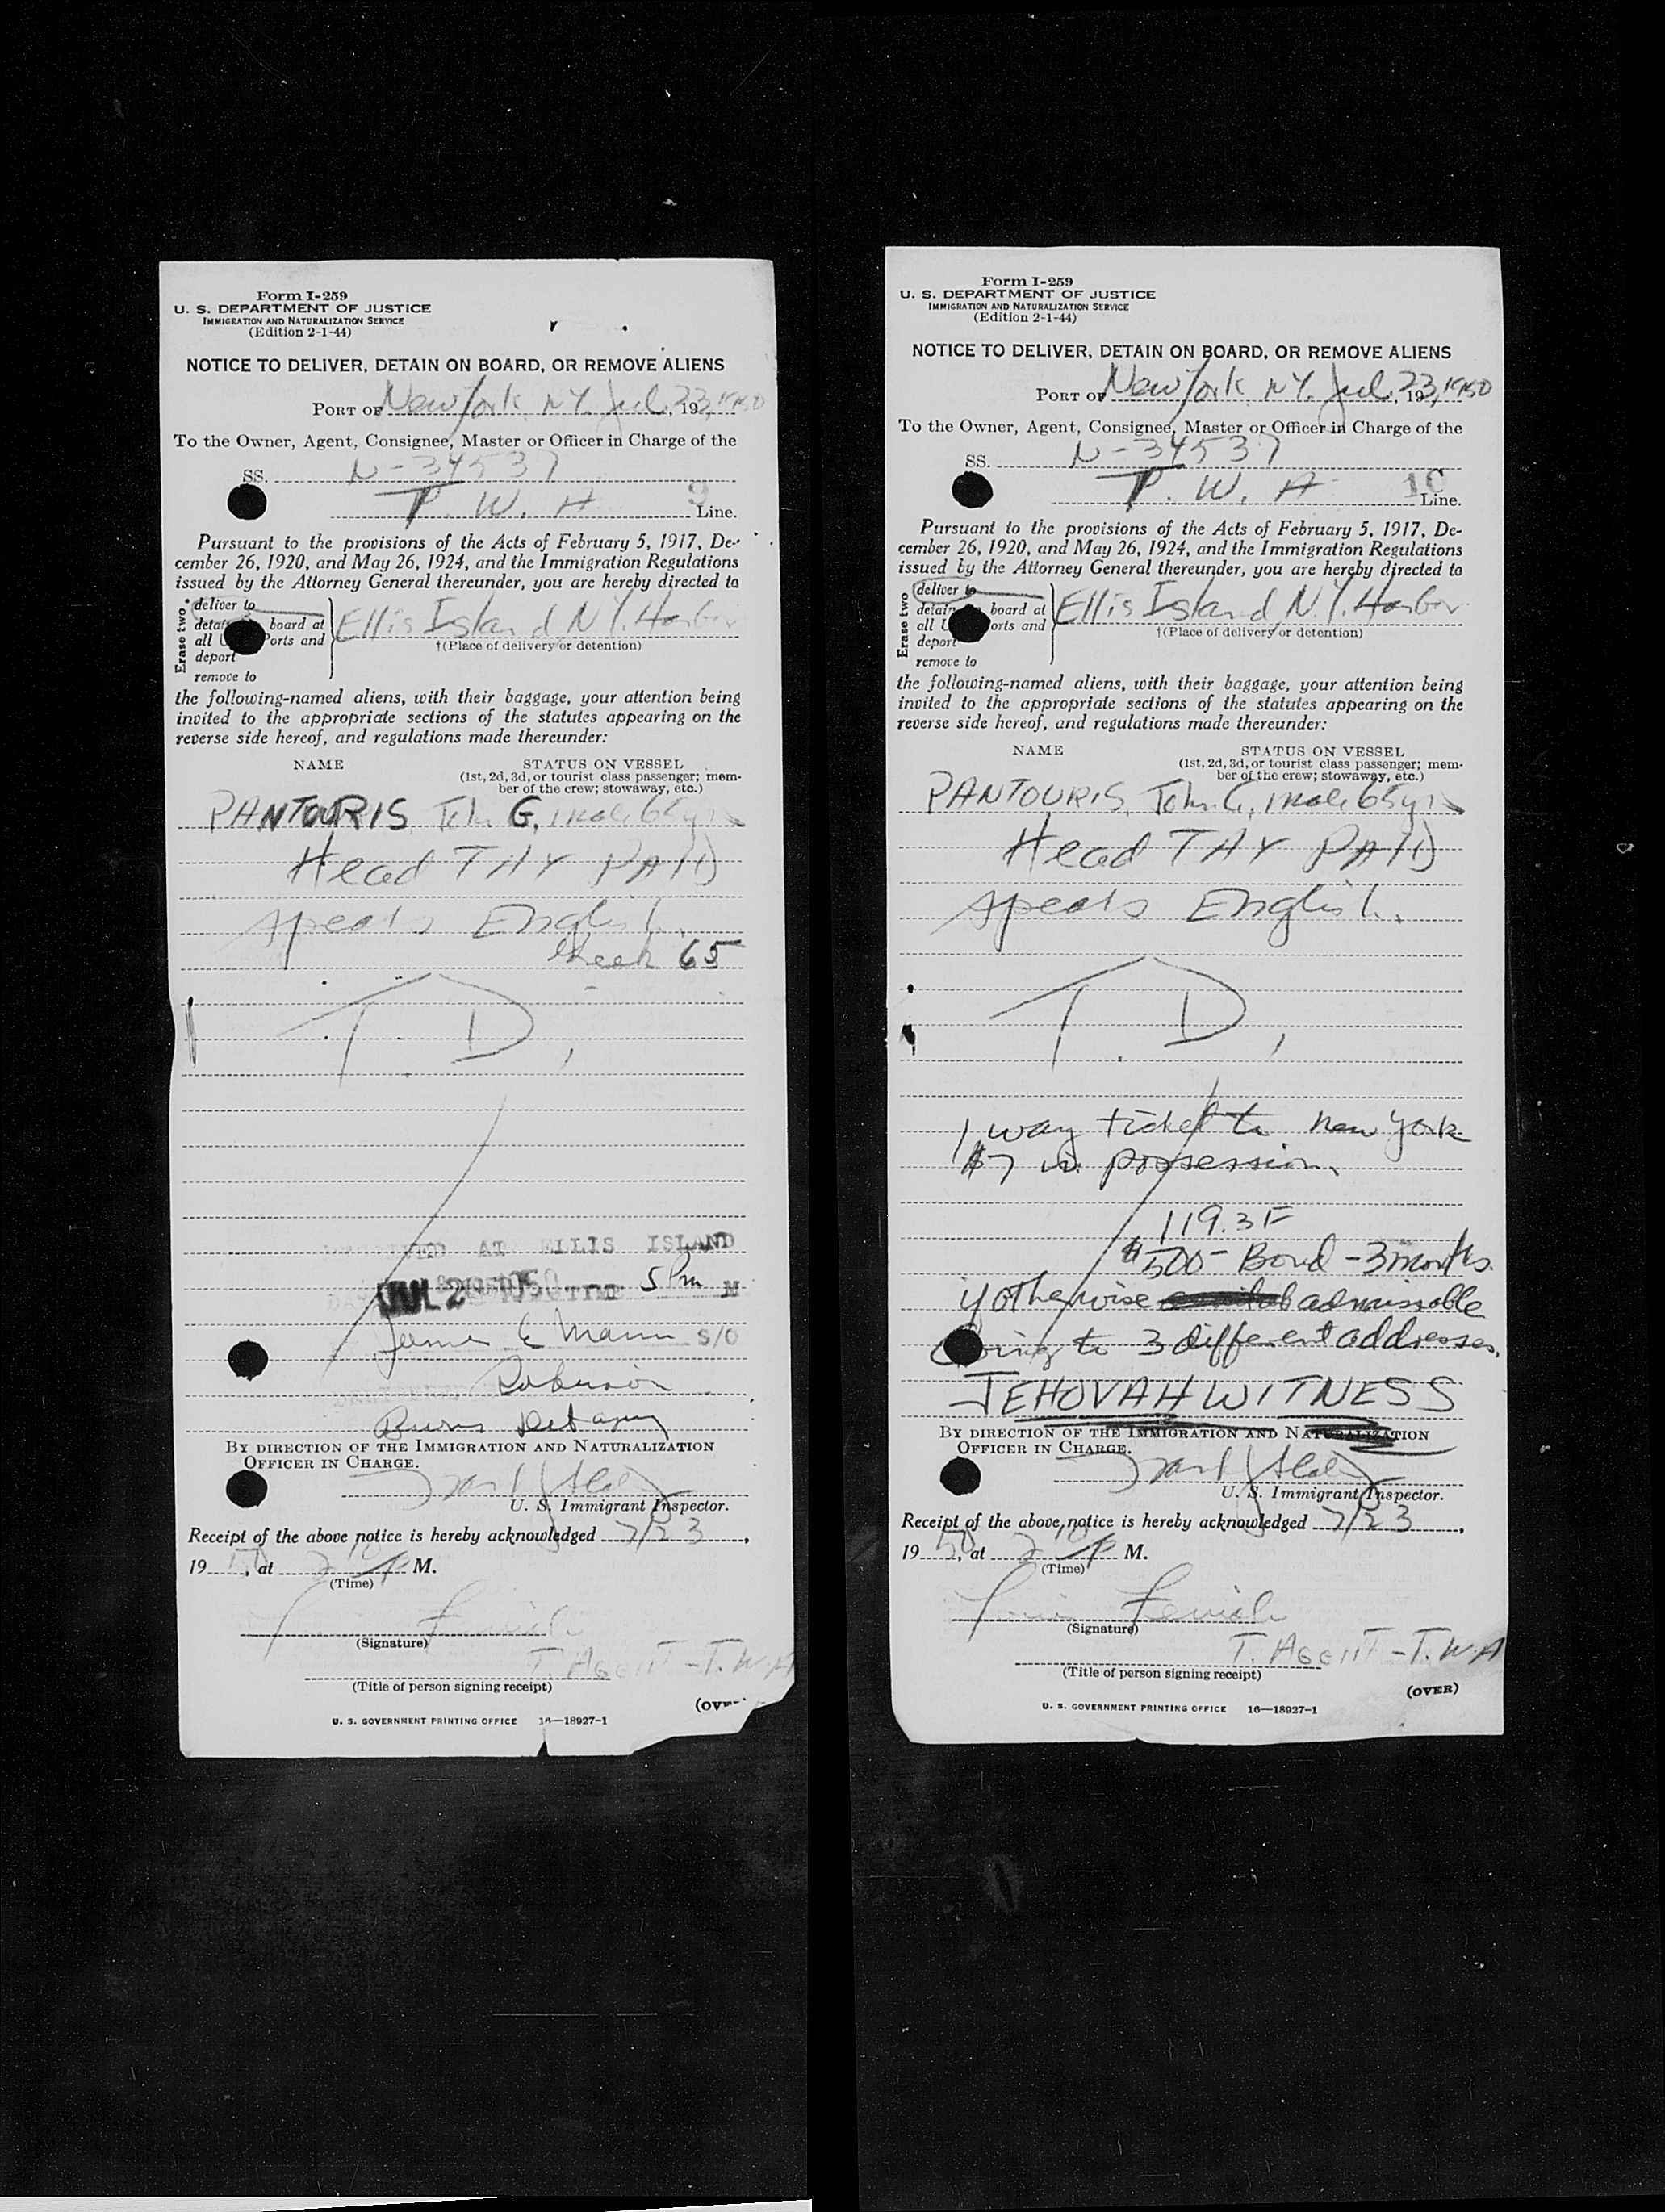 Form I-259
U. S. DEPARTMENT OF JUSTICE
IMMIGRATION AND NATURALIZATION SERVICE
(Edition 2-1-44)
NOTICE TO DELIVER, DETAIN ON BOARD, OR REMOVE ALIENS
PORT OF New York N.Y. Jul. 23, 19 1950
To the Owner, Agent, Consignee, Master or Officer in Charge of the
SS. N-34537
T. W. A 9 Line.
Pursuant to the provisions of the Acts of February 5, 1917, De-
cember 26, 1920, and May 26, 1924, and the Immigration Regulations
issued by the Attorney General thereunder, you are hereby directed to
Erase two
deliver to
board at
all Ports and
deport
remove to
Ellis Island N.Y. Harbor
†(Place of delivery or detention)
the following-named aliens, with their baggage, your attention being
invited to the appropriate sections of the statutes appearing on the
reverse side hereof, and regulations made thereunder:
NAME STATUS ON VESSEL
(1st, 2d, 3d, or tourist class passenger; mem-
ber of the crew; stowaway, etc.)
PANTOURIS, John G, male 65 yrs
Head TAX PAID
speaks English.
Greek 65
T. D,
RECEIVED AT ELLIS ISLAND
JUL 2 1950 TIME 5 Pm M
James E Mann S/O
Robinson
Burns
BY DIRECTION OF THE IMMIGRATION AND NATURALIZATION
OFFICER IN CHARGE.
U. S. Immigrant Inspector.
Receipt of the above notice is hereby acknowledged 7/23,
19 50, at 2 10 P M.
(Time)
(Signature)
T. AGENT - T.W.A
(Title of person signing receipt)
(OVER)
U. S. GOVERNMENT PRINTING OFFICE 16—18927-1
Form I-259
U. S. DEPARTMENT OF JUSTICE
IMMIGRATION AND NATURALIZATION SERVICE
(Edition 2-1-44)
NOTICE TO DELIVER, DETAIN ON BOARD, OR REMOVE ALIENS
PORT OF New York N.Y. Jul. 23, 19 1950
To the Owner, Agent, Consignee, Master or Officer in Charge of the
SS. N-34537
T. W. A 10 Line.
Pursuant to the provisions of the Acts of February 5, 1917, De-
cember 26, 1920, and May 26, 1924, and the Immigration Regulations
issued by the Attorney General thereunder, you are hereby directed to
Erase two
deliver to
detain board at
all orts and
deport
remove to
Ellis Island, N.Y. Harbor
†(Place of delivery or detention)
the following-named aliens, with their baggage, your attention being
invited to the appropriate sections of the statutes appearing on the
reverse side hereof, and regulations made thereunder:
NAME STATUS ON VESSEL
(1st, 2d, 3d, or tourist class passenger; mem-
ber of the crew; stowaway, etc.)
PANTOURIS, John G, male 65 yrs
Head TAX PAID
speaks English.
T. D,
1 way ticket to New York
$7 in possession.
119.3F
$500- Bond - 3 months
if otherwise admissable
Going to 3 different addresses.
JEHOVAH WITNESS
BY DIRECTION OF THE IMMIGRATION AND NATURALIZATION
OFFICER IN CHARGE.
U. S. Immigrant Inspector.
Receipt of the above notice is hereby acknowledged 7/23,
19 50, at 2 10 P M.
(Time)
(Signature)
T. AGENT - T.W.A
(Title of person signing receipt)
(OVER)
U. S. GOVERNMENT PRINTING OFFICE 16—18927-1